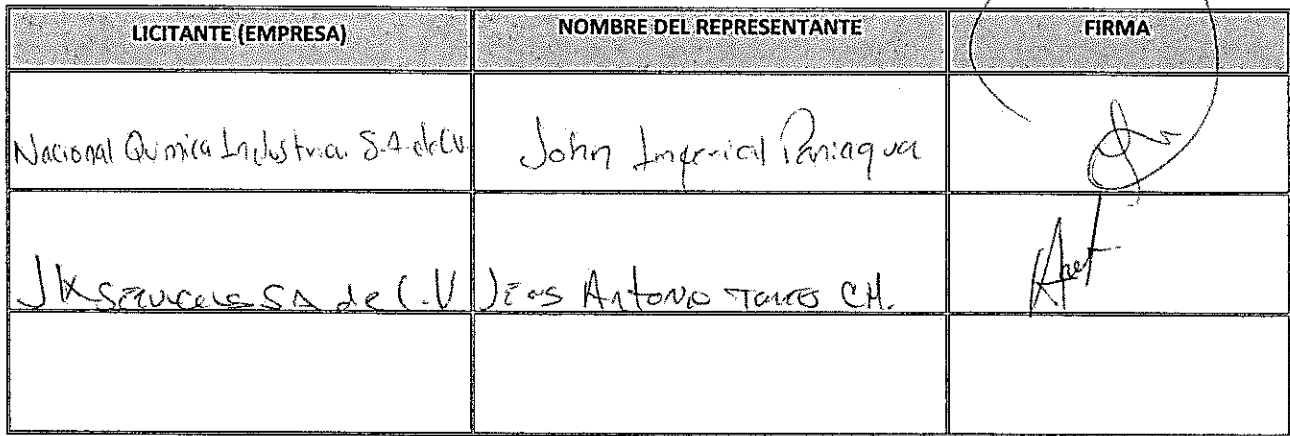 LICITANTE (EMPRESA) NOMBRE DEL REPRESENTANTE FIRMA
Nacional Quimica Industrial S.A. de C.V. John Imperial Paniagua
JK Servicios SA de C.V Antonio Torres CH.